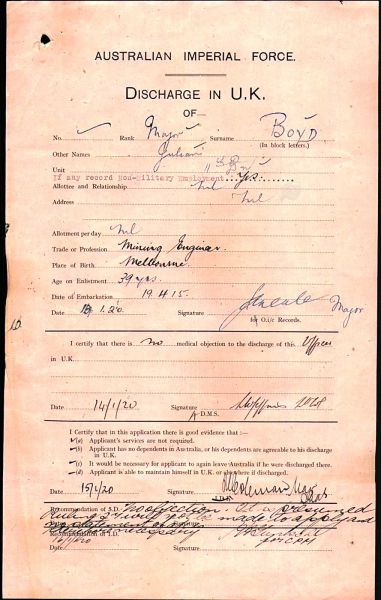 AUSTRALIAN IMPERIAL FORCE.
DISCHARGE IN U.K.
OF—
No. Rank Major Surname BOYD
(In block letters.)
Other Names Julian
Unit
If any record Non-Military Employment ... Yes
Allottee and Relationship Nil
Address Nil
Allotment per day Nil
Trade or Profession Mining Engineer.
Place of Birth Melbourne.
Age on Enlistment 39 yrs
Date of Embarkation 19.4.15.
Date 1.20 Signature Major
for O.i/c Records.
I certify that there is no medical objection to the discharge of this Officer
in U.K.
Date 14/1/20 Signature
A D.M.S.
I Certify that in this application there is good evidence that :—
(a) Applicant's services are not required.
(b) Applicant has no dependents in Australia, or his dependents are agreeable to his discharge
in U.K.
(c) It would be necessary for applicant to again leave Australia if he were discharged there.
(d) Applicant is able to maintain himself in U.K. or elsewhere if discharged.
Date 15/1/20 Coleman Maj
Recommendation of S.D. No objection.
made to apply
16/1/20